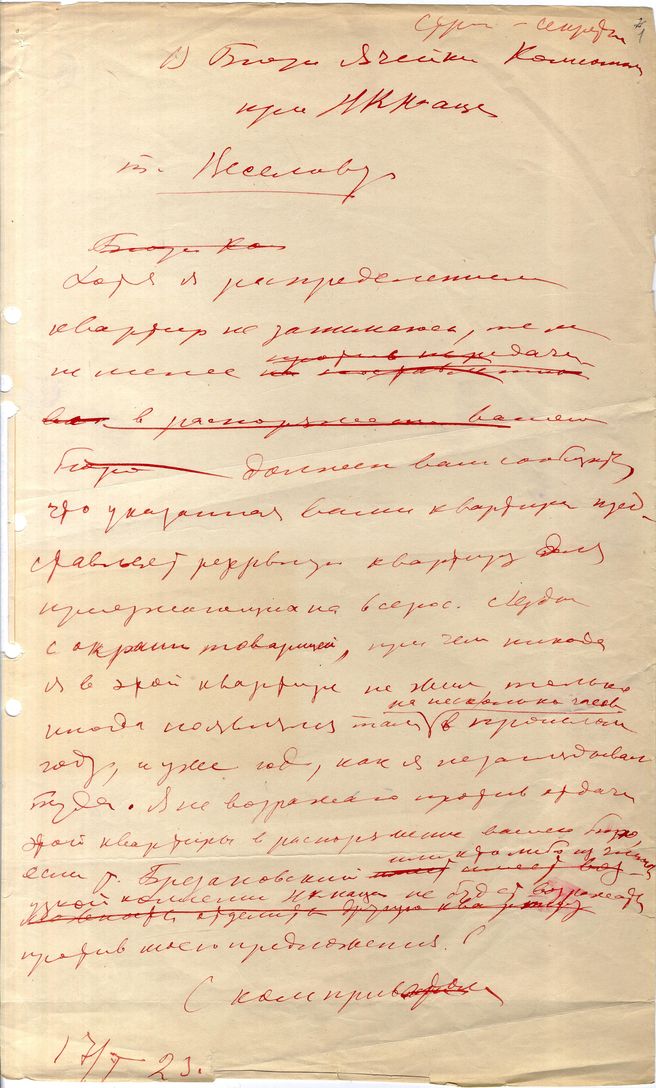 Стро - секретн
В Бюро Ячейки Комсомол
при НКНаце
т. Веселову
Бюро Ко
Хотя я распределением
квартир не занимаюсь, тем
против передачи
не менее
в распоряжение вашего
Бюро должен вам сообщить,
что указанная вами квартира пред-
ставляет резервную квартиру для
приезжающих на всерос. съезды
с окраин товарищей, при чем никогда
я в этой квартире не жил, только
на несколько часов
иногда появлялся там в прошлом
году, и уже год, как я не заглядывал
туда. Я не возражаю против отдачи
этой квартиры в распоряжение вашего Бюро,
если т. Брезановский или кто либо из членов
узкой коллегии НКНаца не будет возражать
отделить другую квартиру
против моего предложения.
С ком прив
17/V 23.